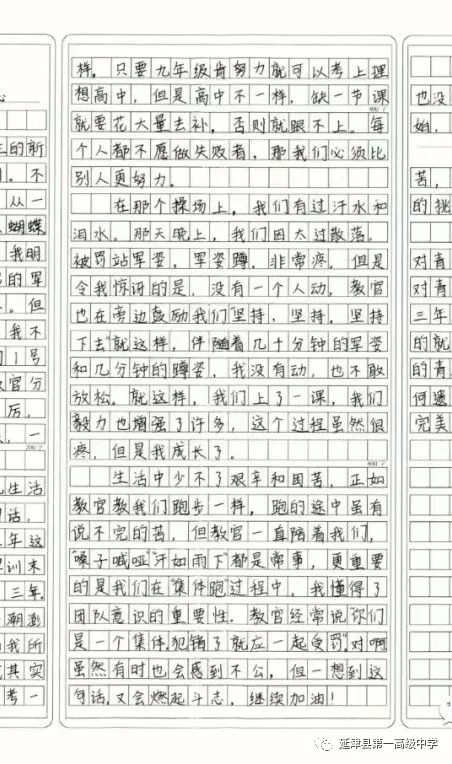 三的新
。不
从一
蝴蝶
我明
的军
。但
我不
门1号
教官分
厉，
，一
200字
生活
话，
年这
军训末
三年。
潮澎
我所
其实
考一
样。只要九年级肯努力就可以考上理
想高中，但是高中不一样，缺一节课
就要花大量去补，否则就跟不上。每
个人都不愿做失败者，那我们必须比
别人更努力。
在那个操场上，我们有过汗水和
泪水。那天晚上，我们因太过散落。
被罚站军姿，军姿蹲，非常疼。但是
令我惊讶的是，没有一个人动，教官
也在旁边鼓励我们“坚持，坚持。坚持
下去”就这样，伴随着几十分钟的军姿
和几分钟的蹲姿，我没有动，也不敢
放松。就这样，我们上了一课，我们
毅力也增强了许多，这个过程虽然很
疼，但是我成长了。
生活中少不了艰辛和困苦，正如
教官教我们跑步一样，跑的途中虽有
说不完的苦，但教官一直陪着我们，
“嗓子喊哑”“汗如雨下”都是常事，更重要
的是我们在“集体跑”过程中，我懂得了
团队意识的重要性。教官经常说“你们
是一个集体，犯错了就应一起受罚”，对啊
虽然有时也会感到不公，但一想到这
句话，又会燃起斗志，继续加油！
也没
始，
苦，
的挑
对青
对青
三年
的就
的青
何遗
完美
延津县第一高级中学